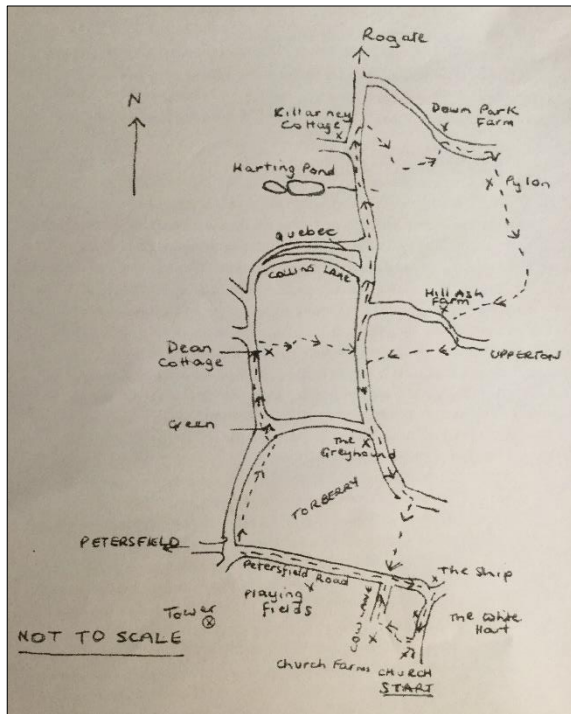 Rogate
N
Killarney
Cottage
Down Park
Farm
Harting Pond
Pylon
Quebec
COLLINS LANE
Hill Ash
Farm
Dean
Cottage
UPPERTON
Green
The
Greyhound
TORBERRY
PETERSFIELD
Petersfield Road
The Ship
Playing
fields
Tower
COW LANE
The White
Hart
NOT TO SCALE
Church Farm
CHURCH
START